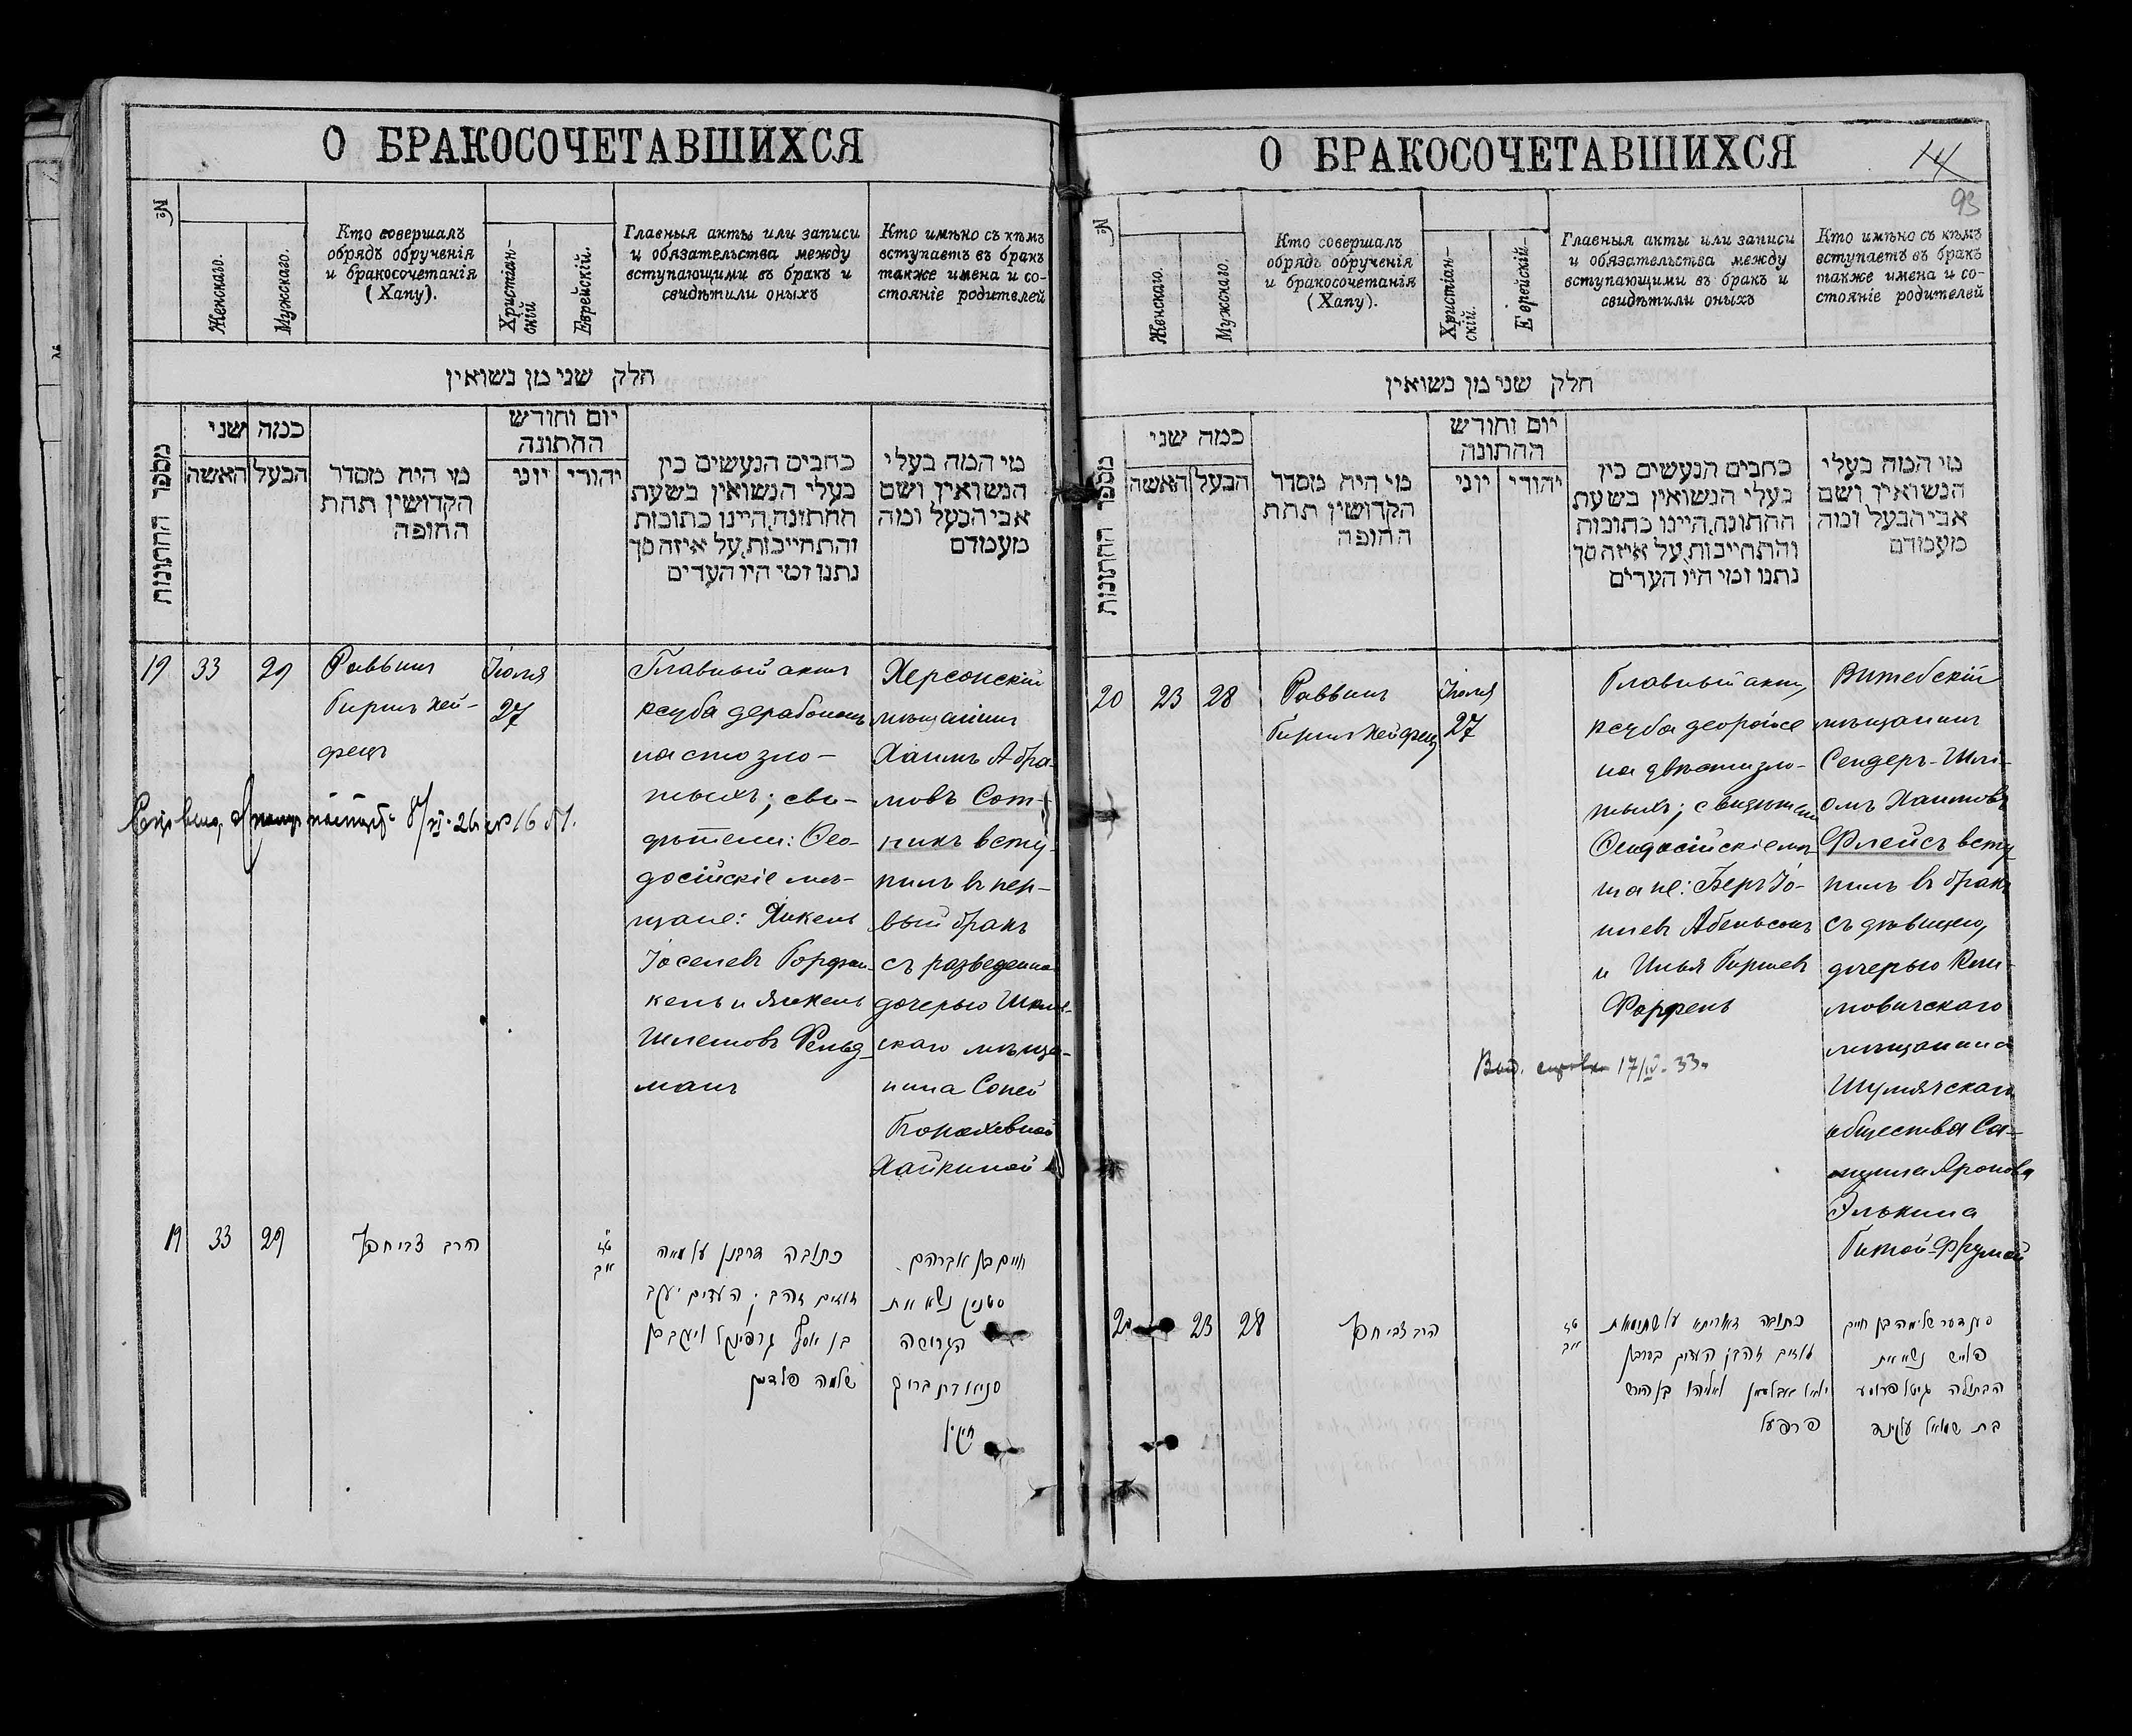 О БРАКОСОЧЕТАВШИХСЯ
№
Женскаго.
Мужскаго.
Кто совершалъ
обрядъ обрученія
и бракосочетанія
(Хапу).
Христіан-
скій
Еврейскій.
Главныя акты или записи
и обязательства между
вступающими въ бракъ и
свидѣтили оныхъ
Кто имѣно съ кѣмъ
вступаетъ въ бракъ
также имена и со-
стояніе родителей
חלק שני מן נשואין
מספר החתונות
כמה שני
האשה
הבעל
מי היה מסדר
הקדושין תחת
החופה
יום וחודש
החתונה
יוני
יהודי
כתבים הנעשים בין
בעלי הנשואין בשעת
החתונה, היינו כתובות
והתחייבות, על איזה סך
נתנו ומי היו העדים
מי המה בעלי
הנשואין ושם
אבי הבעל ומה
מעמדם
19
33
29
Раввинъ
Гиршъ Хей-
фецъ
Іюля
27
Главный актъ
ксуба дерабонанъ
на сто зло-
тыхъ; сви-
дѣтели: Ѳео-
досійскіе мѣ-
щане: Янкель
Іоселевъ Горфин-
кель и Янкель
Шлемовъ Фельд-
манъ
Херсонскій
мѣщанинъ
Хаимъ Абра-
мовъ Сот-
никъ всту-
пилъ въ пер-
вый бракъ
съ разведенной
дочерью Шклов-
скаго мѣща-
нина Соней
Бороховной
Хайкиной
19
33
29
הרב צבי חפץ
טז
אב
כתובה דרבנן על מאה
זהובים זהב; העדים יעקב
בן יוסף גרפינקל ויעקב בן
שלמה פלדמן
חיים בן אברהם
סטניק נשא את
הגרושה
סניא בת ברוך
חייקין
О БРАКОСОЧЕТАВШИХСЯ
14
93
№
Женскаго.
Мужскаго.
Кто совершалъ
обрядъ обрученія
и бракосочетанія
(Хапу).
Христіан-
скій.
Еврейскій
Главныя акты или записи
и обязательства между
вступающими въ бракъ и
свидѣтили оныхъ
Кто имѣно съ кѣмъ
вступаетъ въ бракъ
также имена и со-
стояніе родителей
חלק שני מן נשואין
מספר החתונות
כמה שני
האשה
הבעל
מי היה מסדר
הקדושין תחת
החופה
יום וחודש
החתונה
יוני
יהודי
כתבים הנעשים בין
בעלי הנשואין בשעת
החתונה, היינו כתובות
והתחייבות, על איזה סך
נתנו ומי היו העדים
מי המה בעלי
הנשואין ושם
אבי הבעל ומה
מעמדם
20
23
28
Раввинъ
Гиршъ Хейфецъ
Іюля
27
Главный актъ,
ксуба деорайсе
на двѣсти зло-
тыхъ; свидѣтели
Ѳеодосійскіе мѣ-
щане: Беръ Іо-
шевъ Абельсонъ
и Илья Гиршевъ
Форфель
Витебскій
мѣщанинъ
Сендеръ-Шлі-
омъ Хаимовъ
Флейсъ всту-
пилъ въ бракъ
съ дѣвицею,
дочерью Кли-
мовичскаго
мѣщанина
Шумячскаго
общества Са-
муила Аронова
Элькина
Гитой-Фрумой
17/IV-33.
23
28
הרב צבי חפץ
טז
אב
כתובה דאוריתא על מאתים
זהובים
פרפעל
סענדער שלמה בן חיים
פלייש נשא את
הבתולה גיטא פרומע
בת שמואל עלקינד